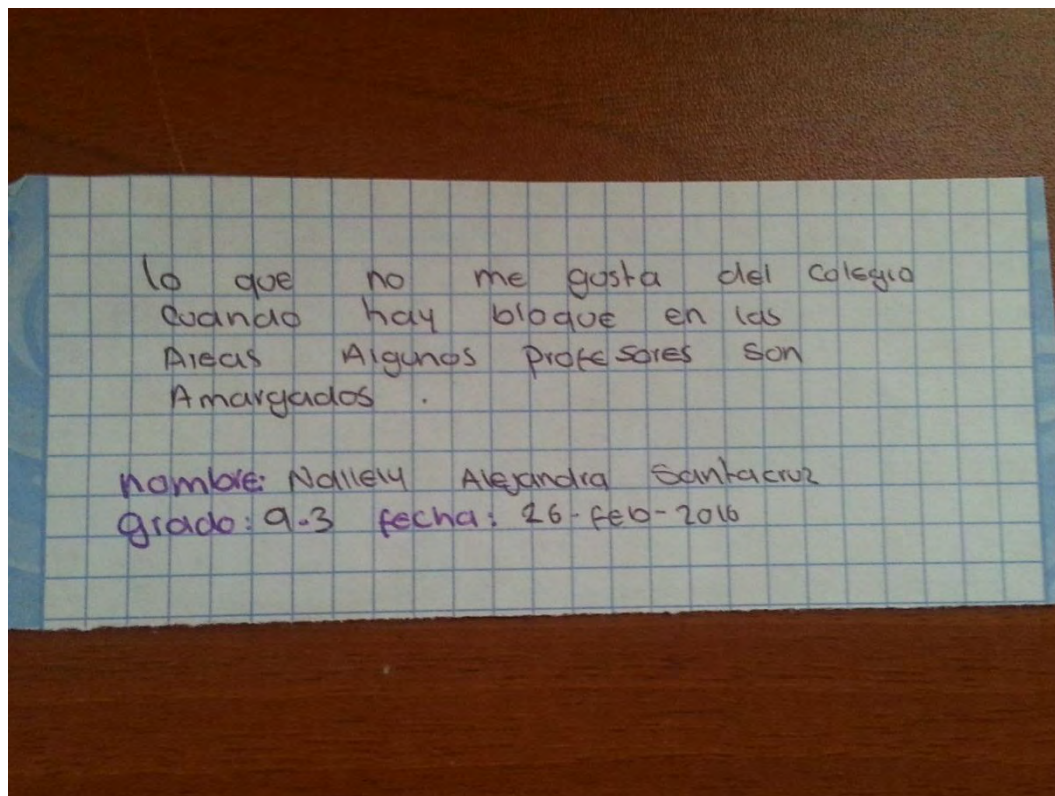 lo que no me gusta del colegio
cuando hay bloque en las
Areas Algunos profesores son
Amargados .
nombre: Nallely Alejandra Santacruz
grado: 9.3 fecha: 26-feb-2016